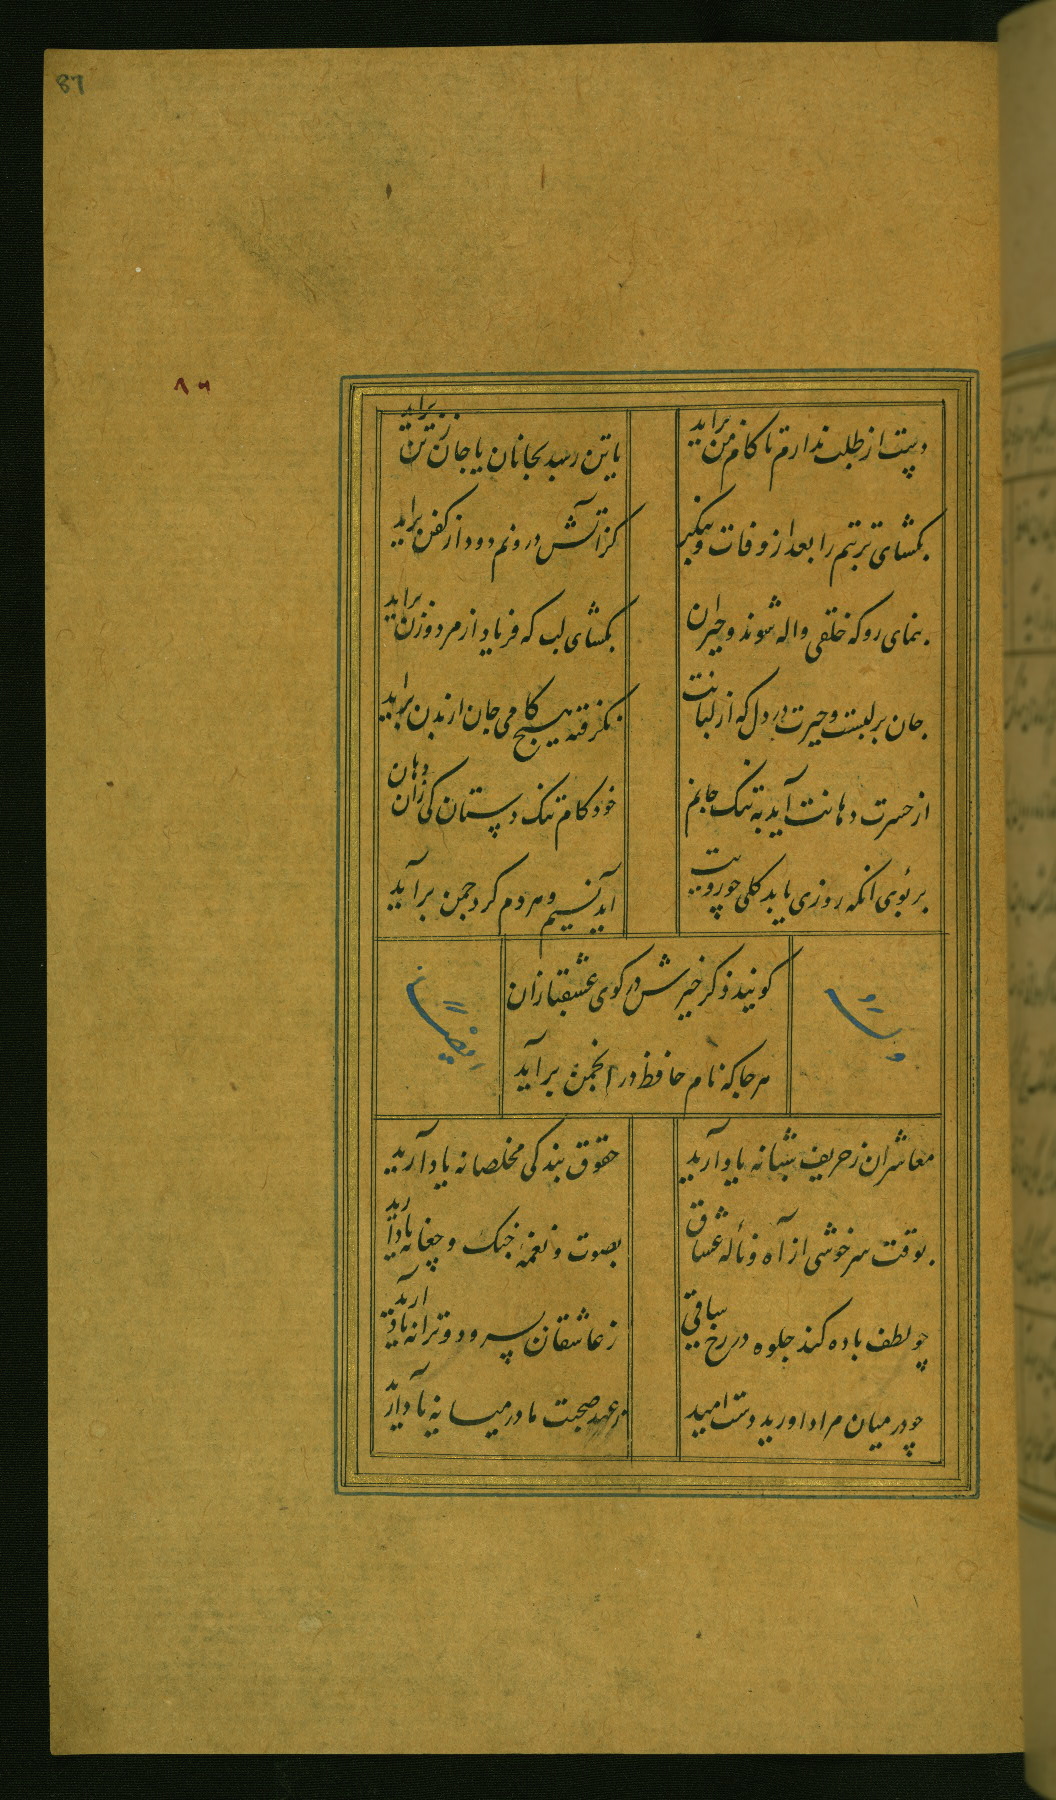 87
۸۶
دست از طلب ندارم تا کام من براید
یا تن رسد بجانان یا جان زتن براید
بکشای تربتم را بعد از وفات و بنکر
کز آتش درونم دود از کفن براید
بنمای رو که خلقی واله شوند و حیران
بکشای لب که فریاد از مرد و زن براید
جان بر لبست و حیرت در دل که از لبانت
نکرفته هیچ کامی جان از بدن براید
از حسرت دهانت آید به تنک جانم
خود کام تنک دستان کی زان دهان
بر بوی انکه روزی یابد کلی چو رویت
اید نسیم و هر دم کرد چمن براید
کویند ذکر خیرش در کوی عشقبازان
هر جا که نام حافظ در انجمن برآید
وله
ایضا
معاشران ز حریف شبانه یاد آرید
حقوق بندکی مخلصانه یاد آرید
بوقت سرخوشی از آه و ناله عشاق
بصوت و نغمه چنک و چغانه یاد آرید
چو لطف باده کند جلوه در رخ ساقی
ز عاشقان بسرود و ترانه یاد آرید
چو در میان مراد اورید دست امید
ز عهد صحبت ما در میانه یاد آرید